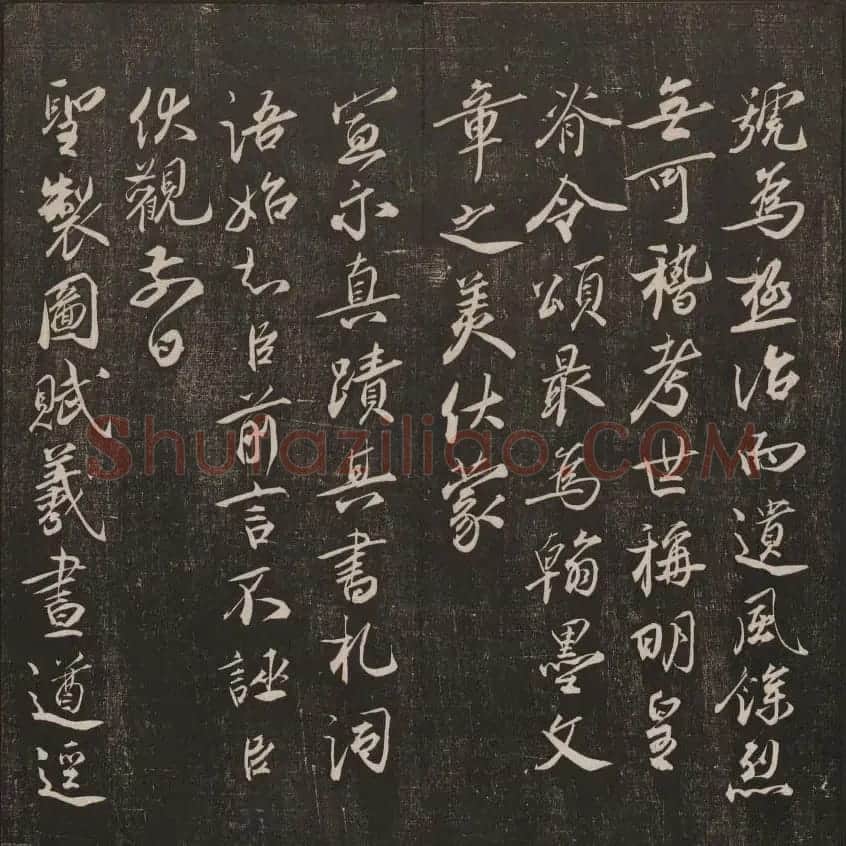 號為極治而遺風餘烈
無可稽考世稱明皇
脊令頌最為翰墨文
章之美伏蒙
宣示真蹟其書札詞
語始知臣前言不誣臣
伏觀前日
聖製圖賦羲畫遒逕
Shufaziliao.COM